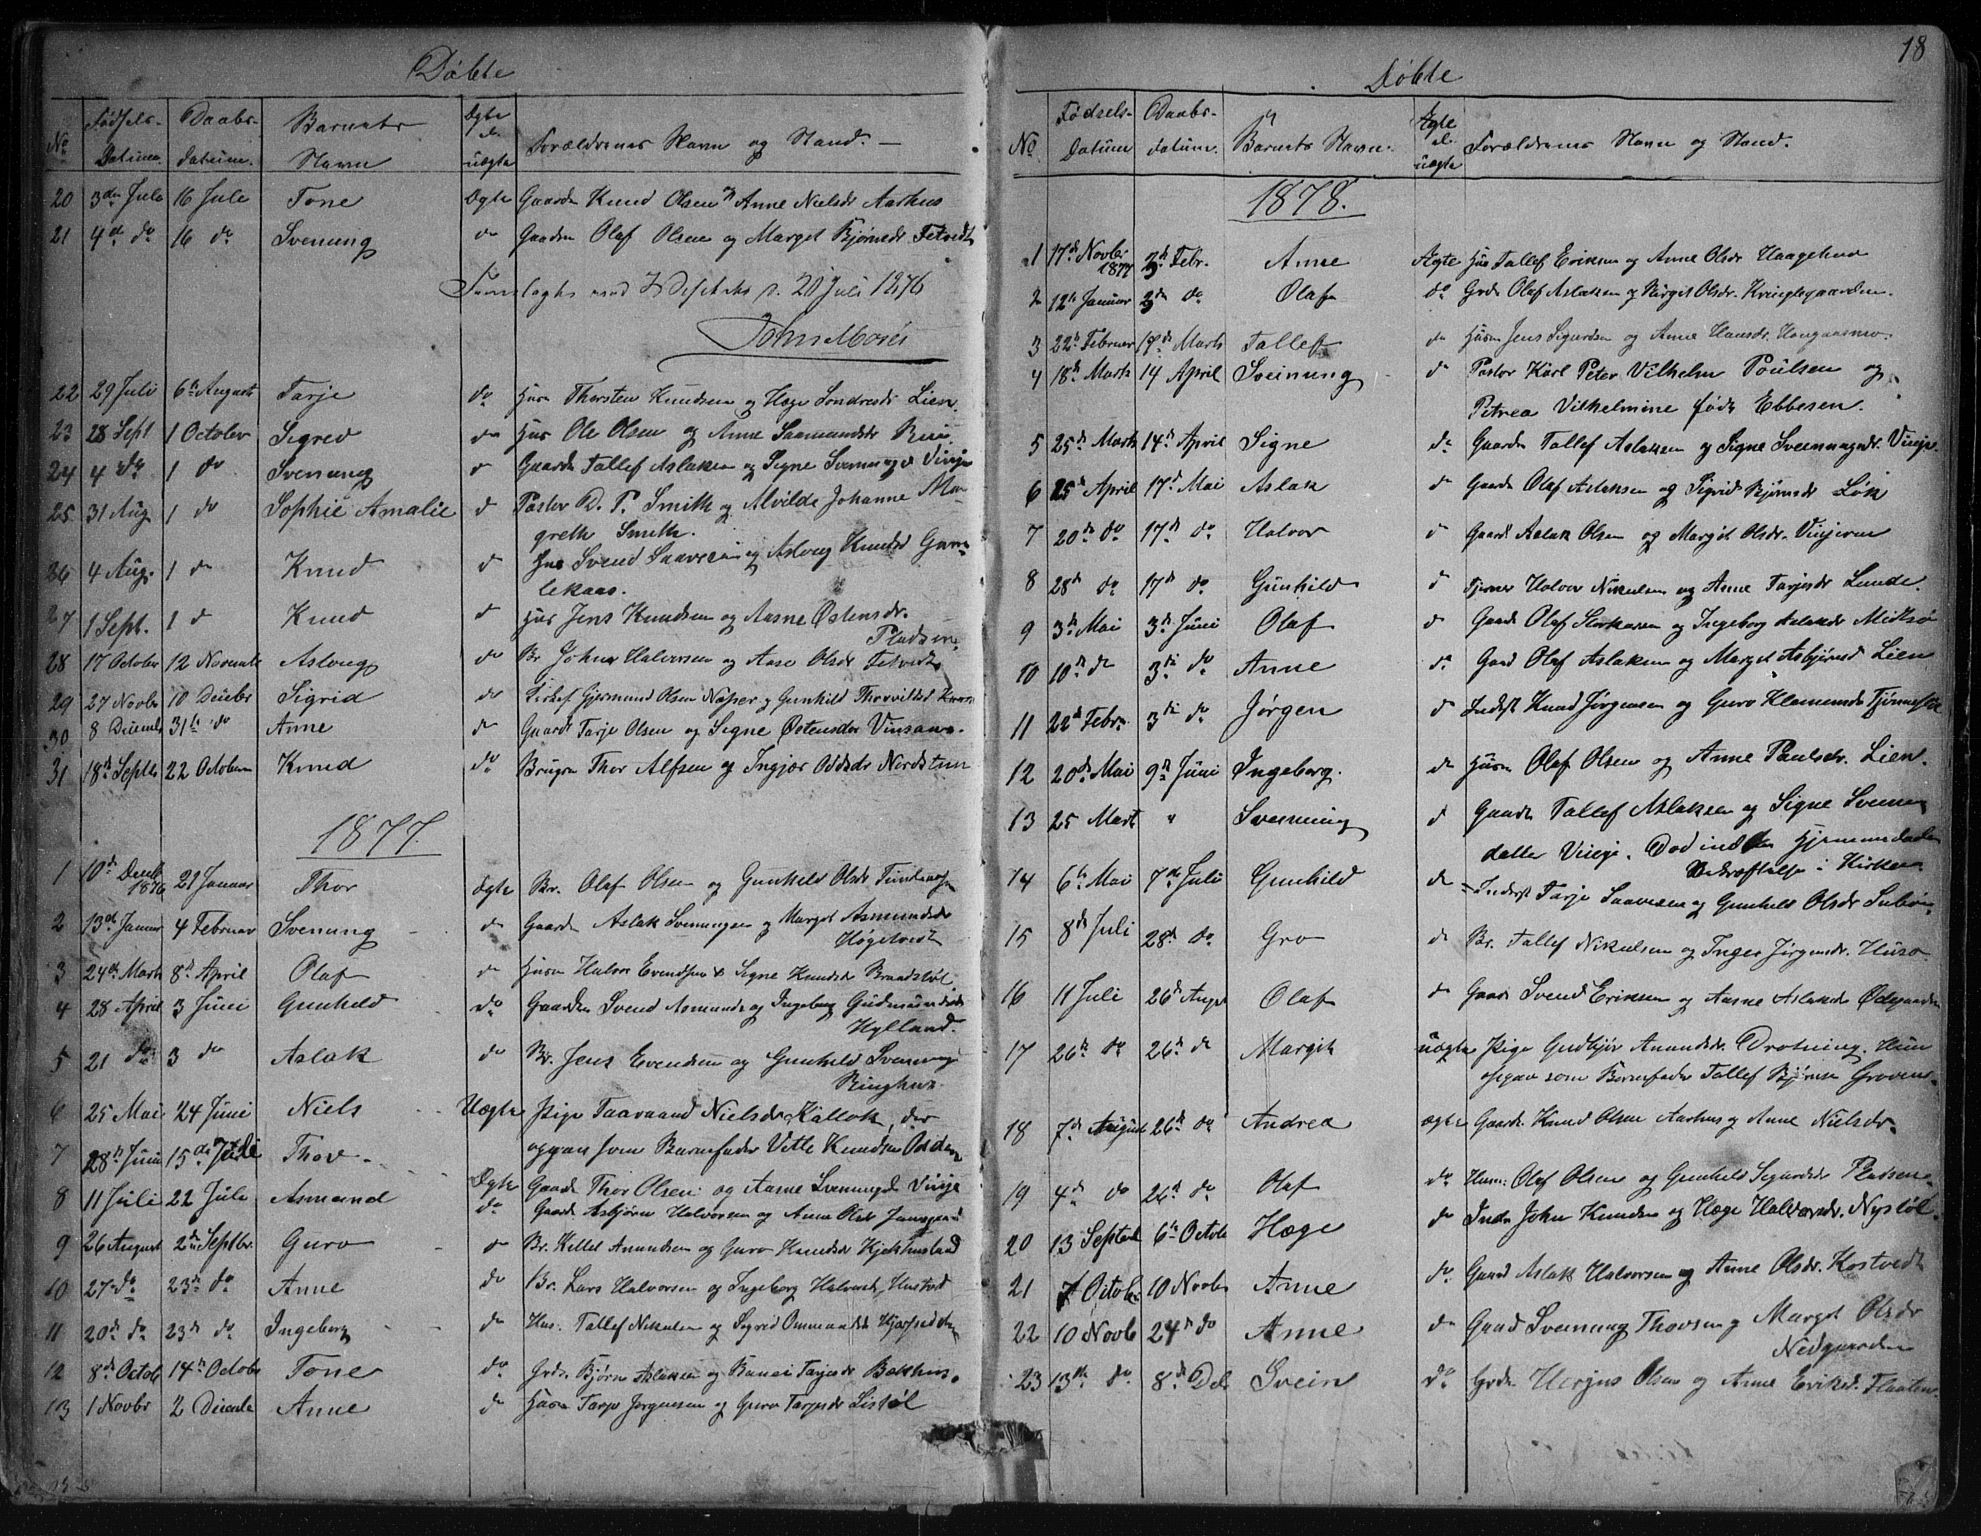 Døbte
No Fødsels- Datum Daabs- datum. Barnets Navn Ægte el. uægte Forældrenes Navn og Stand. —
20 3de Juli 16 Juli Tone Ægte Gaardm Knud Olsen og Anne Nielsdr Aarhus
21 4de do 16 do Svenung do Gaardm Olaf Olsen og Marget Bjørnsdr. Tetvedt
d. 20 Juli 1876
22 29 Juli 6te August Tarje do Husm Thorsten Knudsen og Hæge Sondresdr Lien.
23 28 Sept 1 October Sigred do Hus Ole Olsen og Anne Saamundsdr
24 4 do 1 do Svenung do Gaardm Tallef Aslaksen og Signe Svenungsd Vinje
25 31 Aug. 1 do Sophie Amalie do Pastor D. P. Smith og Alvilde Johanne Mar-
grethe Smith.
26 4 Aug. 1 do Knud d Hus Svend Saavesen og Aslaug Knudsd Gam-
lekaas.
27 1 Sept. 1 d Knud d Hus Jens Knudsen og Aasne Østensdr.
Pladsen.
28 17 October 12 Novembr Aslaug do Br. John Halvorsen og Aase Olsdr Tetvedt
29 27 Novbr 10 Decbr Sigrid do Gjermund Olsen og Gunhild
30 8 Decemb 31te do Anne do Gaardm Tarje Olsen og Signe Østensdr Vinsaas.
31 18de Septb 22 October Knud do Brugsm Thor Alfsen og Ingjer Oddsdr Nordstuen
1877.
1 10de Decb 1876 21 Januar Thor Ægte Br. Olaf Olsen og Gunhild Olsdr
2 13de Januar 4 Februar Svenung do Gaardm Aslak Svenungsen og Marget Asmundsdr
Høgetvedt
3 24de Marts 8de April Olaf do Husm Halvor Evendsen & Signe Knudsdr Brandstøl.
4 28 April 3 Juni Gunhild do Gaardm Svend Asmunds og Ingeborg Gudmundsdr
Hylland.
5 21 do 3 do Aslak do Br. Jens Evendsen og Gunhild Svenung
Ringhus.
6 25 Mai 24 Juni Niels Uægte Pige Taavaand Nielsdr Kallok, der
opgav som Barnefader Vetle Knudsen Odden
7 28de Juni 15de Juli Thov.
8 11 Juli 22 Juli Asmund Ægte Gaardm Thor Olsen og Aasne Svenungsd Vinje
do Gaardm Asbjørn Halvorsen og Anne Olsdr
9 26 August 2den Septbr. Guro do Br. Kittel Amundsen og Guro Knudsdr
10 27de do 23de do Anne do Br. Lars Halvorsen og Ingeborg Halvorsd. Hustvet
11 20de do 23de do Ingeborg do Hus. Tallef Nikulsen og Sigrid
12 8de Octob 14de Octobr Tone do Grdm. Bjørn Aslaksen og Tarjesdr Bakhus.
13 1 Novbr 2 Decemb Anne do Husm Tarje Jørgensen og Guro Tarjesdr Listøl
18
Døbte
No Fødsels- Datum Daabs- datum. Barnets Navn. Ægte el. uægte Forældrenes Navn og Stand.
1878.
1 17de Novbr 1877 3de Febr. Anne Ægte Hus Tallef Eriksen og Anne Olsdr Haagelund
2 12te Januar 3de do Olaf do Grdm Olaf Aslaksen og Birget Olsdr. Kringlegaarden.
3 22de Februar 17de Marts Tallef do Husm Jens Sigurdsen og Anne Hansdr.
4 18de Marts 14 April Sveinung do Pastor Karl Peter Vilhelm Poulsen og
Petrea Vilhelmine født Ebbesen.
5 25de Marts 14de April Signe do Gaardm Tallef Aslaksen og Signe Svenungsdr. Vinje.
6 25de April 17de Mai Aslak do Gaardm Olaf Aslaksen og Sigrid Bjørnsdr Løk
7 20de do 17de do Halvor d Gaardm Aslak Olsen og Margit Olsdr. Vinjeren
8 28de do 17de do Gunhild d Halvor Nikulsen og Anne Tarjesdr Lunde.
9 3de Mai 3de Juni Olaf d Gaardm Olaf Storkaasen og Ingeborg Aslaksdr Midtsø
10 10de do 3de do Anne do Gaard Olaf Aslaksen og Marget Asbjørnsd Lien
11 22de Febr. 3de do Jørgen d Inderst Knud Jørgensen og Guro Klemmendsdr Tjønnestøl
12 20de Mai 9de Juni Ingeborg. do Husm Olaf Olsen og Anne Paulsdr. Lien.
13 25 Marts " Svenning d Gaardm Tallef Aslaksen og Signe Svenung
datter Vinje. Død inden Hjemmedaabens
Bekræftelse i Kirken
14 6te Mai 7de Juli Gunhild do Inderst Tarje Saavesen og Gunhild Olsdr
15 8de Juli 28de do Gro do Br. Tallef Nikulsen og Inger Jørgensdr. Huso
16 11 Juli 26de Augst Olaf do Gaardm Svend Eriksen og Aasne Aslaksdr Ødegaarden
17 26de do 26de do Margit uægte Pige Gudbjør Amundsdr. Drotning. Hun
opgav som Barnefader Tallef Bjørnsen Groven.
18 7de August 26de do Andrea ægte Gaardm. Knud Olsen Aarhus og Anne Nielsdr.
19 4de do 26de do Olaf do Husm. Olaf Olsen og Gunhild Sigurdsdr Pladsen.
20 13 Septbr 6te Octobr Hæge do Inds John Knudsen og Hæge Halvorsdr. Nystøl.
21 7 Octobr 10 Novbr Anne do Gaard Aslak Halvorsen og Anne Olsdr. Kostvedt
22 10 Novbr 24de do Anne do Gaard Svenung Thovsen og Marget Olsdr
Nedgaarden
23 13de do 8de Dec Svein do Grdm Herjus Olsen og Anne Eriksd. Flaaten